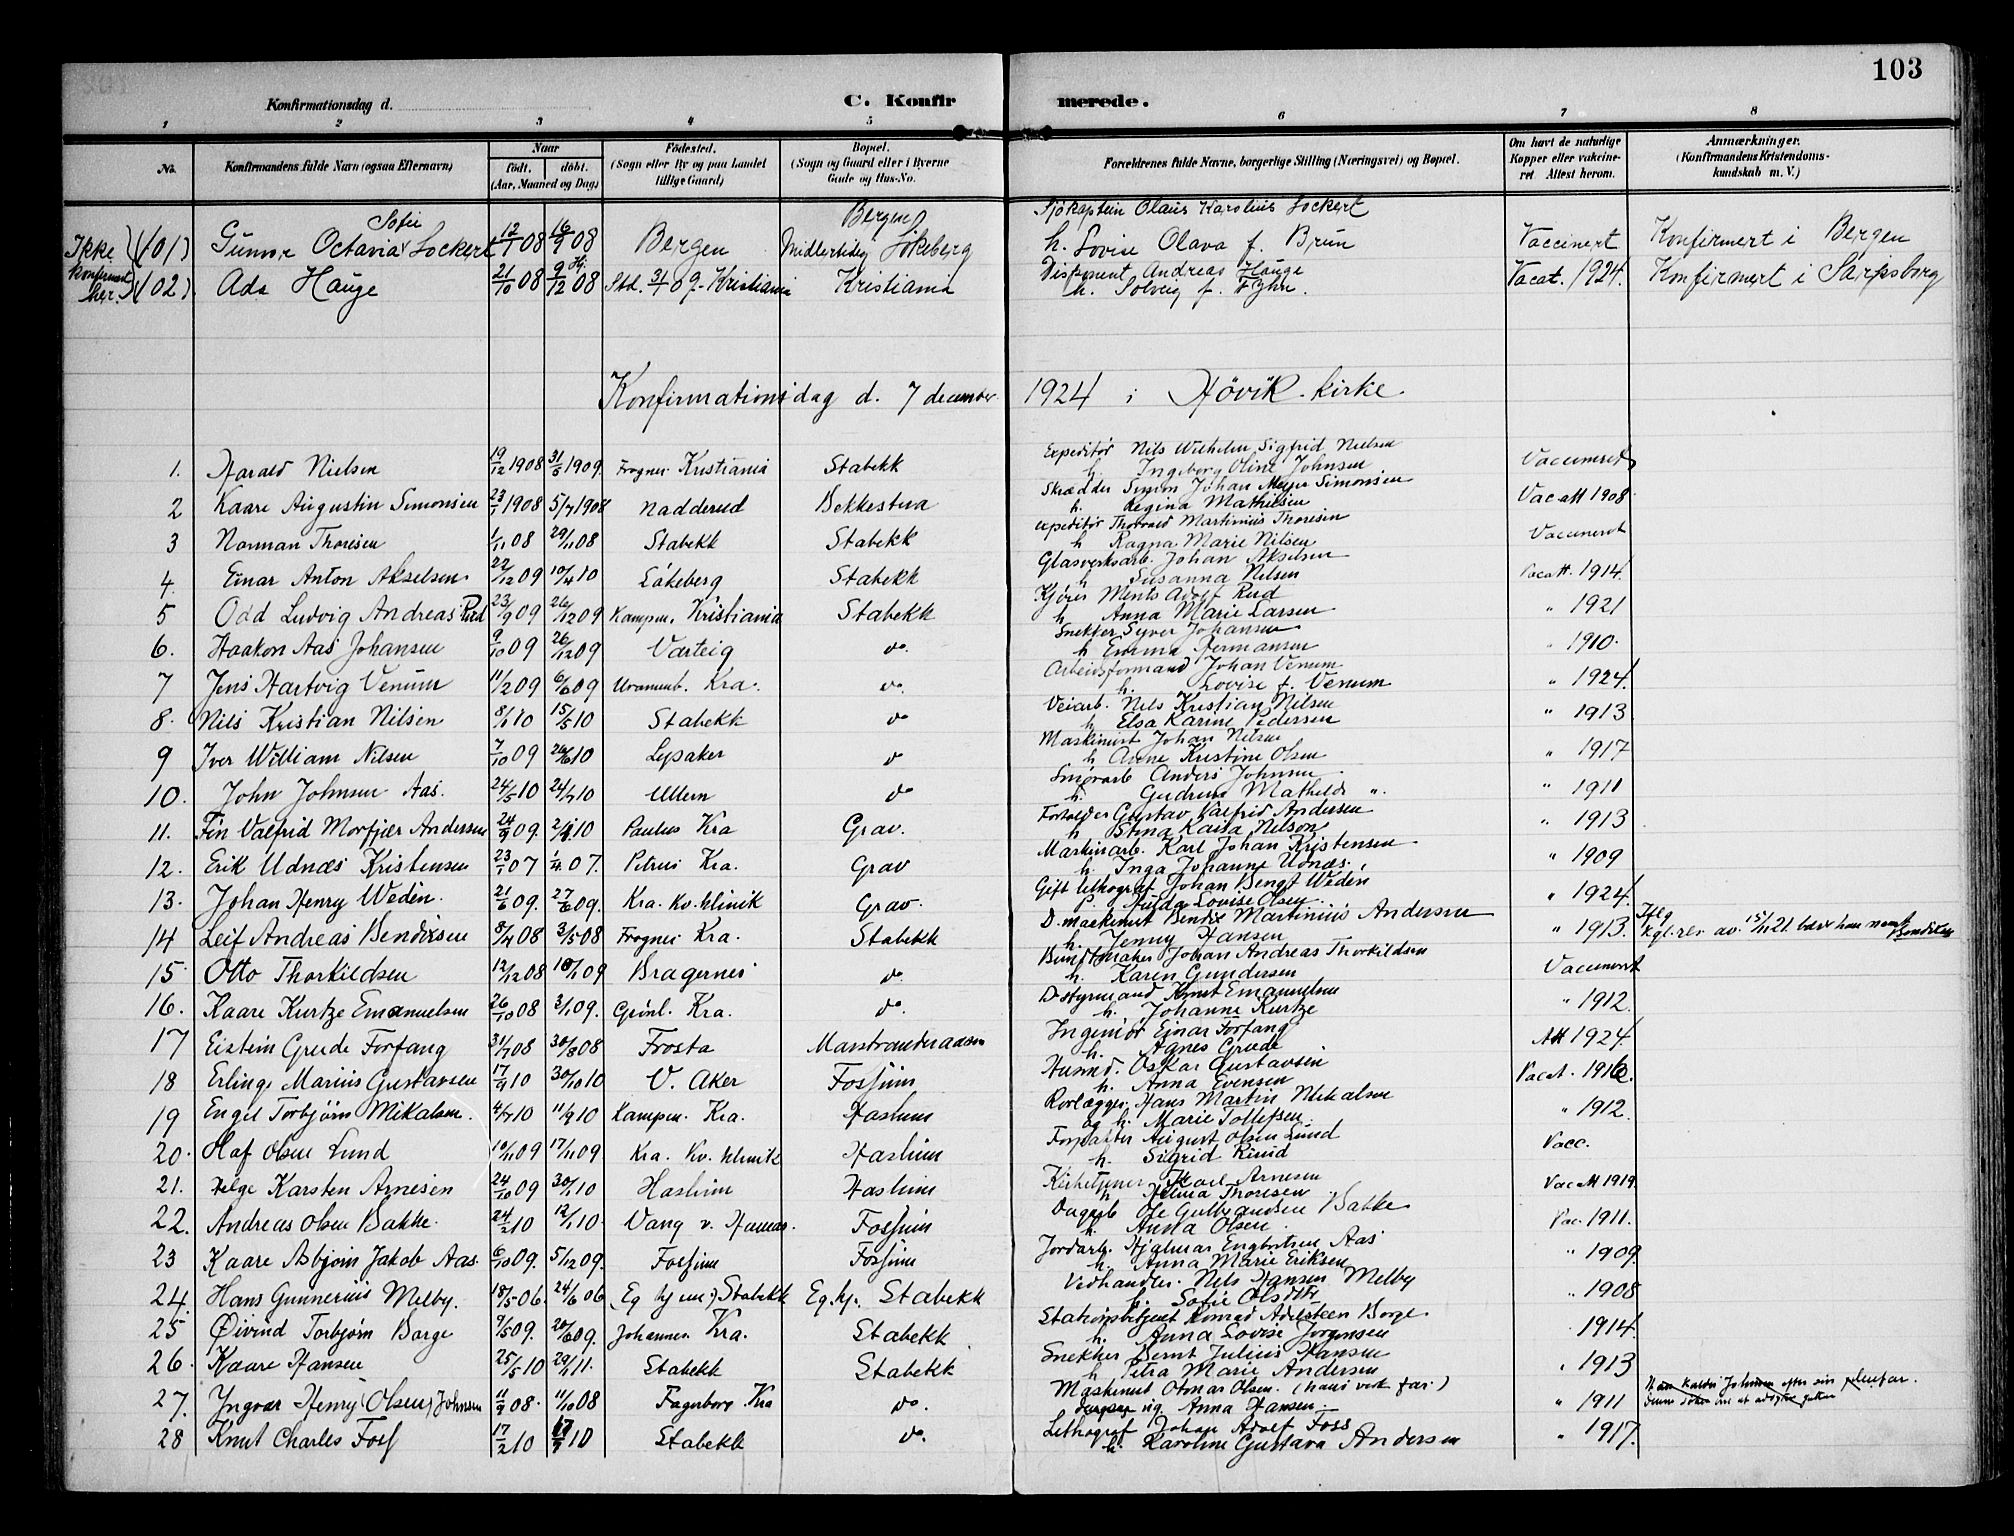 103
Konfirmationsdag d.
C. Konfirmerede.
1 2 3 4 5 6 7 8
No. Konfirmandens fulde Navn (ogsaa Efternavn) Naar født. døbt. (Aar, Maaned og Dag) Fødested. (Sogn eller By og paa Landet tillige Gaard) Bopæl. (Sogn og Gaard eller i Byerne Gade og Hus-No. Forældrenes fulde Navne, borgerlige Stilling (Næringsvei) og Bopæl. Om havt de naturlige Kopper eller vakcineret Attest herom. Anmærkninger. (Konfirmandens Kristendomskundskab m. V.)
Ikke konfirmert her.
(101) Gunvor Octavia Sofie Lockert 12/1 08 16/9 08 Bergen Bergen Midlertidig Løkeberg Sjøkaptein Olaus Karolius Lockert
h. Lovise Olava f. Brun Vaccinert Konfirmert i Bergen
(102) Ada Hauge 21/10 08 9/12 08 Hj. Std. 31/1 09 - Kristiania Kristiania Disponent Andreas Hauge
h. Solveig f. Vacat. 1924. Konfirmert i Sarpsborg
Konfirmationsdag d. 7 december 1924 i Høvik kirke
1. Harald Nielsen 19/12 1908 31/5 1909 Frogner Kristiania Stabekk Expeditør Nils Wilhelm Sigfrid Nielsen
h. Ingeborg Oline Johnsen Vaccineret
2 Kaare Augustin Simonsen 23/1 1908 5/7 1908 Nadderud Bekkestua Skrædder Simon Johan Meyer Simonsen
h. Regina Mathilsen Vac att 1908
3 Norman Thoresen 1/11 08 29/11 08 Stabekk Stabekk expeditør Thorvald Martinius Thoresen
h Ragna Marie Nilsen Vaccineret
4. Einar Anton Akselsen 22/12 09 10/4 10 Løkeberg Stabekk Glasverksarb. Johan Akselsen
h Susanna Nilsen Vacatt. 1914.
5 Odd Ludvig Andreas Rud 23/9 09 26/12 09 Kampen, Kristiania Stabekk Kjører Ments Adolf Rud
h Anna Marie Larsen " 1921
6. Haakon Aas Johansen 9/10 09 26/12 09 Varteig do. Snekker Syver Johansen
h Emma Hermansen " 1910.
7 Jens Hartvig Venum 11/2 09 6/6 09 Uranienb. Kra. do. Arbeidsformand Johan Venum
h. Lovise f. Venum " 1924.
8. Nils Kristian Nilsen 8/1 10 15/5 10 Stabekk do Veiarb. Nils Kristian Nilsen
h Elsa Karine Pedersen " 1913
9 Iver William Nilsen 7/10 09 26/6 10 Lysaker do Maskinist Johan Nilsen
h Anne Kristine Olsen " 1917
10. John Johnsen Aas. 24/5 10 24/7 10 Ullern do Smørarb Anders Johnsen
h. Gudrun Mathilde ". " 1911
11. Fin Valfrid Morfjær Andersen 24/9 09. 2/1 10 Paulus Kra Grav. Forvalder Gustav Valfrid Andersen
h Stina Kaisa Nilson " 1913
12. Erik Udnæs Kristensen 23/1 07 1/4 07. Petrus Kra. Grav Maskinarb. Karl Johan Kristensen
h. Inga Johanne Udnæs. " 1909
13. Johan Henry Weden. 21/6 09. 27/6 09. Kra. Kv. klinik Grav. Gift lithograf Johan Bengt Wedén
p. Hulda Lovise Olsen " 1924.
14 Leif Andreas Bendiksen 8/4 08 3/5 08 Frogner Kra. Stabekk D. maskinist Bendix Martinius Andersen
h. Jenny Hansen " 1913. Iflg kgl. res av. 15/11 21. bærer han navnet Bendiksen
15. Otto Thorkildsen 12/12 08 10/1 09 Bragernes do. Buntmaker Johan Andreas Thorkildsen
h. Karen Gundersen Vaccineret
16. Kaare Kurtze Emanuelsen 26/10 08 3/1 09. Grønl. Kra. do. D styrmand Knut Emanuelsen
h. Johanne Kurtze " 1912.
17 Eistein Grude Forfang 31/7 08 30/8 08 Frosta Marstranderaasen Ingeniør Einar Forfang
h. Agnes Grude Att 1924
18 Erling Marius Gustavsen 17/9 10 30/10 10 V. Aker Fossum Husmd. Oskar Gustavsen
h. Anna Evensen Vacat. 1916.
19 Engel Torbjørn Mikalsen. 4/7 10 11/9 10 Kampen. Kra. Haslum Rørlægger. Hans Martin Mikalsen
og h. Marie Tollefsen. " 1912.
20. Olsen Lund 10/11 09 17/11 09. Kra. Kv. klinik Haslum Forpakter August Olsen Lund
h. Sigrid Vacc.
21. Helge Karsten Arnesen 24/10 09 30/1 10 Haslum Haslum Kirketjener Karl Arnesen
h Helma Thoresen Vac att 1919.
22. Andreas Olsen Bakke. 24/2 10 12/1 10. Vang v. Hamar. Fossum Dagarb Ole Gulbrandsen Bakke
h. Anna Olsen. Vac. 1911.
23 Kaare Asbjørn Jakob Aas. 6/10 09. 5/12 09. Fossum Fossum Jordarb. Hjalmar Engbretsen Aas
h. Anna Marie Eriksen " 1909.
24. Hans Gunnerius Melby. 18/5 06. 24/6 06 (Eg hjem:) Stabekk Eg. hj. Stabekk Vedhandler. Nels Hansen Melby
h. Sofie " 1908
25 Øivind Torbjørn Borge 9/5 09. 20/6 09. Johannes Kra. Stabekk Stationsbetjent Konrad Adelsteen Borge
h. Anna Lovise Jørgensen 1914.
26. Kaare Hansen 25/5 10 29/1 11. Stabekk Stabekk Snekker Bernt Julius Hansen
h Petra Marie Andersen " 1913
27. Ingvar Henry (Olsen) Johnsen 11/9 08. 11/10 08 Fagerborg Kra do. Maskinist Otmar Olsen. (hans virk. far.)
ug. Anna Hansen. " 1911 Han kaldes Johnsen efter sin pleiefar.
28 Knut Charles Foss 17/2 10 10 Stabekk do. Lithograf Johan Adolf Foss
h. Karoline Gustava Andersen " 1917.